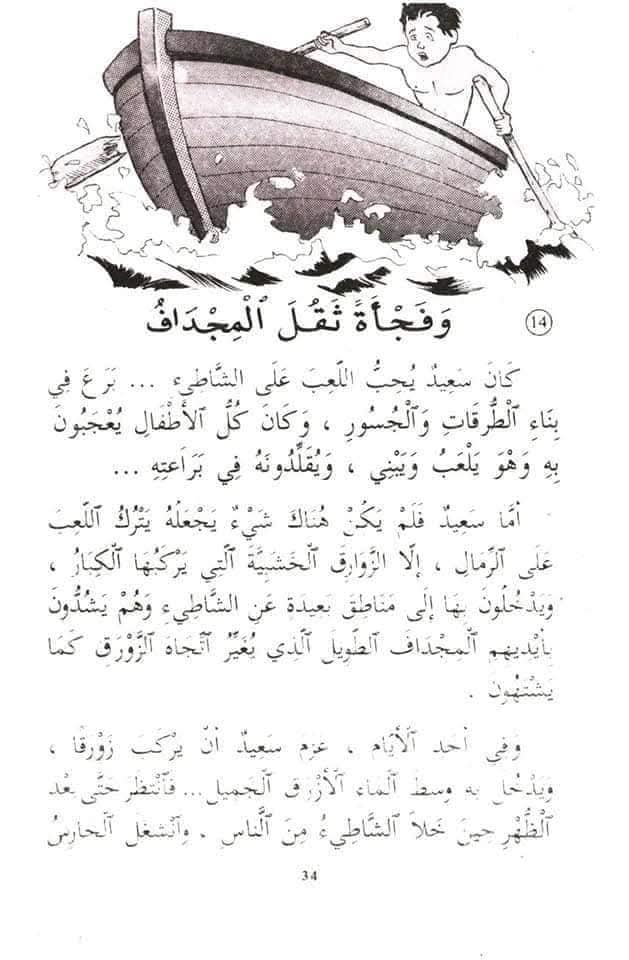 وَفَجْأَةً ثَقُلَ ٱلْمِجْدَافُ
14
كَانَ سَعِيدٌ يُحِبُّ اللَّعِبَ عَلَى الشَّاطِىءِ ... بَرَعَ فِي
بِنَاءِ ٱلْطُّرقَاتِ وَٱلْجُسُورِ ، وَكَانَ كُلُّ ٱلأَطْفَالِ يُعْجَبُونَ
بِهِ وَهْوَ يَلْعَبُ وَيَبْنِي ، وَيُقَلِّدُونَهُ فِي بَرَاعَتِهِ ...
أمَّا سَعِيدٌ فَلَمْ يَكُنْ هُنَاكَ شَيْءٌ يَجْعَلُهُ يَتْرُكُ اللَّعِبَ
عَلَى ٱلرِّمَالِ ، إلَّا ٱلزَّوَارِقَ ٱلْخَشَبِيَّةَ ٱلَّتِي يَرْكَبُهَا ٱلْكِبَارُ ،
وَيَدْخُلُونَ بِهَا إلَى مَنَاطِقَ بَعِيدَةٍ عَنِ الشَّاطِيءِ وَهُمْ يَشُدُّونَ
بِأيْدِيهِمِ ٱلْمِجْدَافَ ٱلطَّوِيلَ ٱلَّذِي يُغَيِّرُ ٱتِّجَاهَ ٱلزَّوْرَقِ كَمَا
يَشْتَهُونَ .
وَفِي أحَدِ ٱلأيَّامِ ، عَزَمَ سَعِيدٌ أنْ يَرْكَبَ زَوْرَقًا ،
وَيَدْخُلَ بِهِ وسطَ ٱلْمَاءِ ٱلأزْرَقِ ٱلْجَمِيلِ... فَٱنْتَظَرَ حَتَّى بَعْدَ
ٱلْظُّهْرِ حِينَ خَلاَ ٱلشَّاطِيءُ مِنَ ٱلنَّاسِ . وَٱنْشَغَلَ ٱلحَارِسُ
34